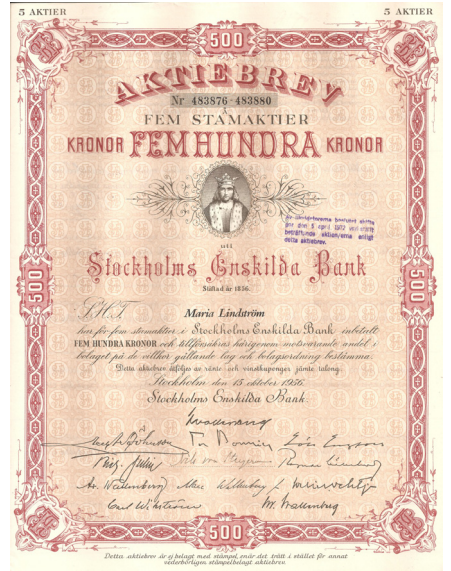 5 AKTIER 5 AKTIER
500
AKTIEBREV
Nr 483876-483880
Å
FEM STAMAKTIER
KRONOR FEMHUNDRA KRONOR
den 5 april 1972
beträffande aktien/erna enligt
detta aktiebrev.
uti
Stockholms Enskilda Bank
Stiftad år 1856.
500 500
S.H.T. Maria Lindström
har för fem stamaktier i Stockholms Enskilda Bank inbetalt
FEM HUNDRA KRONOR och tillförsäkras härigenom motsvarande andel i
bolaget på de villkor gällande lag och bolagsordning bestämma.
Detta aktiebrev åtföljes av ränte- och vinstkuponger jämte talong.
Stockholm den 15 oktober 1956.
Stockholms Enskilda Bank.
500
Detta aktiebrev är ej belagt med stämpel, enär det trätt i stället för annat
vederbörligen stämpelbelagt aktiebrev.